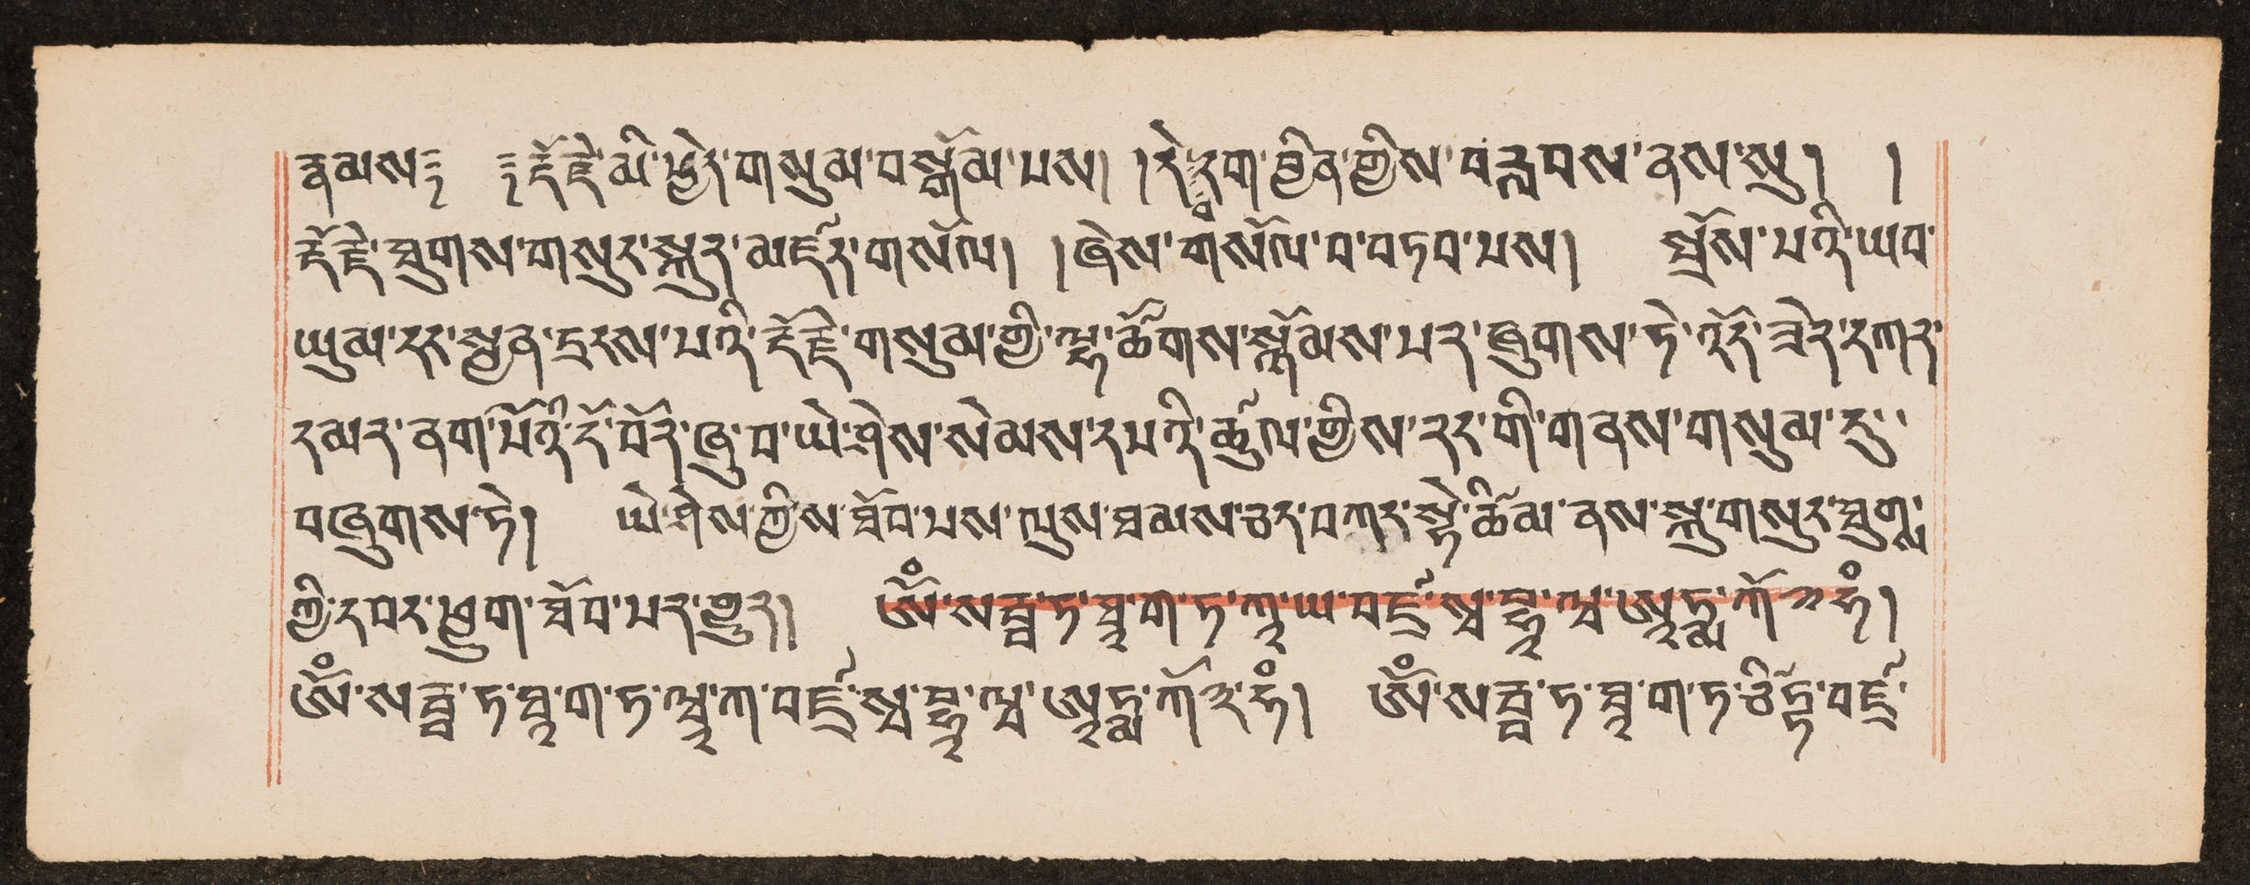 རྣམས༔ ༔རྡོ་རྗེ་མི་ཕྱེད་གསུམ་བསྒོམ་པས། །དེང་འདིར་བྱིན་གྱིས་བརླབས་ནས་སུ། །
རྡོ་རྗེ་ཐུགས་གསུང་སྐུར་མཛོད་གསོལ། །ཞེས་གསོལ་བ་བཏབ་པས། སྤྲོས་པའི་ཡབ་
ཡུམ་དང་སྤྱན་དྲངས་པའི་རྡོ་རྗེ་གསུམ་གྱི་ལྷ་ཚོགས་སྙོམས་པར་ཞུགས་ཏེ་འོད་ཟེར་དཀར་
དམར་ནག་པོའི་ངོ་བོར་ཞུ་བ་ཡེ་ཤེས་སེམས་དཔའི་ཚུལ་གྱིས་རང་གི་གནས་གསུམ་དུ་
བཞུགས་ཏེ། ཡེ་ཤེས་ཀྱིས་ཐོབ་པས་ལུས་ཐམས་ཅད་བཀང་སྟེ་ཚིམ་ནས་སྐུ་གསུང་ཐུགས་
ཀྱི་དབང་ཕྱུག་ཐོབ་པར་གྱུར། ཨོཾ་སརྦ་ཏ་ཐཱ་ག་ཏ་ཀཱ་ཡ་བཛྲ་སྭ་བྷཱ་ཝ་ཨཱཏྨ་ཀོ྅ཧཾ།
ཨོཾ་སརྦ་ཏ་ཐཱ་ག་ཏ་ཝཱ་ཀ་བཛྲ་སྭ་བྷཱ་ཝ་ཨཱཏྨ་ཀོ྅ཧཾ། ཨོཾ་སརྦ་ཏ་ཐཱ་ག་ཏ་ཙིཏྟ་བཛྲ་